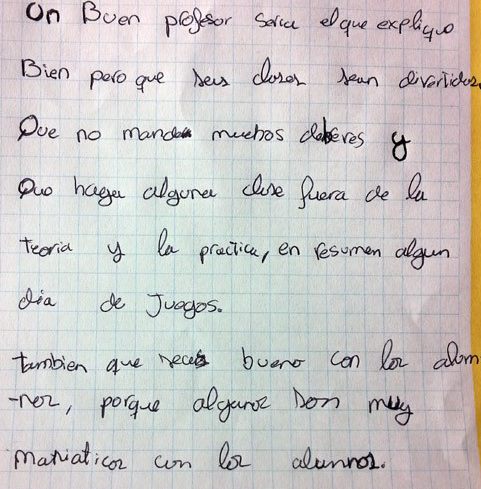 Un Buen profesor seria el que explique
Bien pero que sus clases sean divertidas,
Que no mande muchos deberes y
Que haga alguna clase fuera de la
teoria y la practica, en resumen algun
dia de Juegos.
tambien que sea bueno con los alum
-nos, porque algunos son muy
maniaticos con los alumnos.